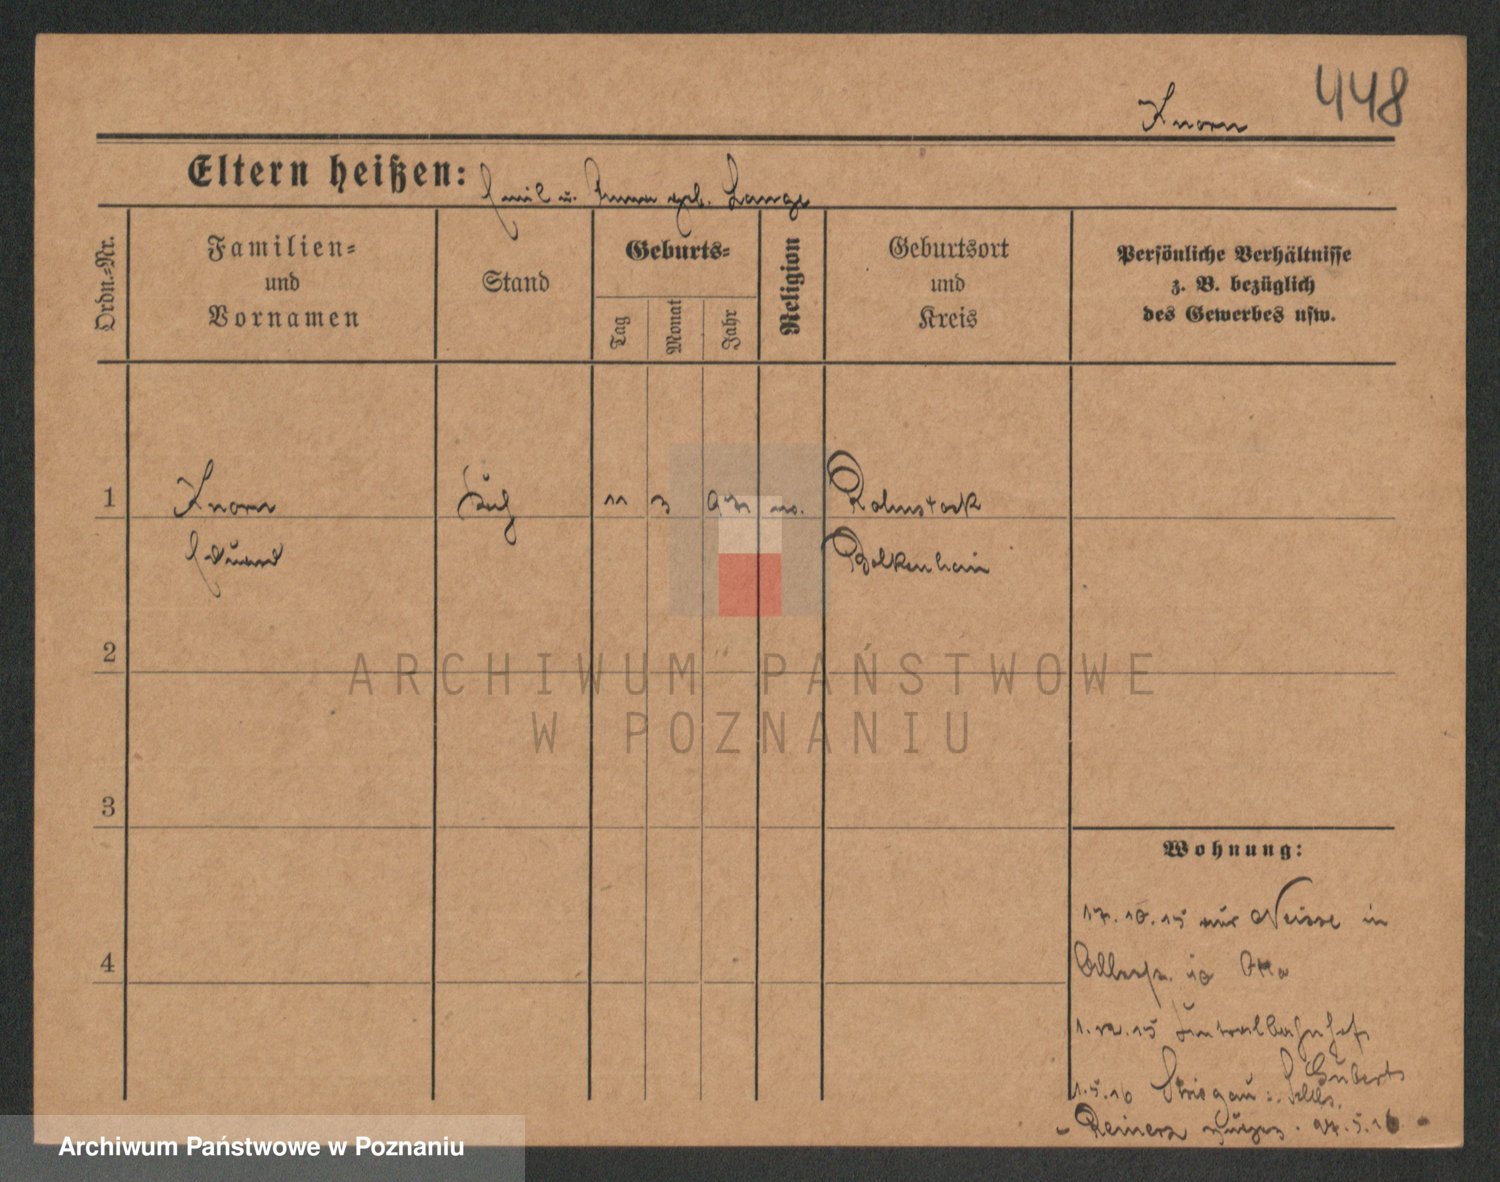 448
Knorn
Eltern heißen: Emil u. Anna geb. Lange
Ordn.=Nr.
Familien=
und
Vornamen
Stand
Geburts=
Tag
Monat
Jahr
Religion
Geburtsort
und
Kreis
Persönliche Verhältnisse
z. B. bezüglich
des Gewerbes usw.
1
Knorn
11
3
97
Rohnstock
Eduard
Bolkenhain
2
3
4
Wohnung:
17.10.15 aus Neisse in
1.12.15 Zentralbahnhof
1.5.16 Striegau
Reinerz 27.5.16
ARCHIWUM PAŃSTWOWE
W POZNANIU
Archiwum Państwowe w Poznaniu